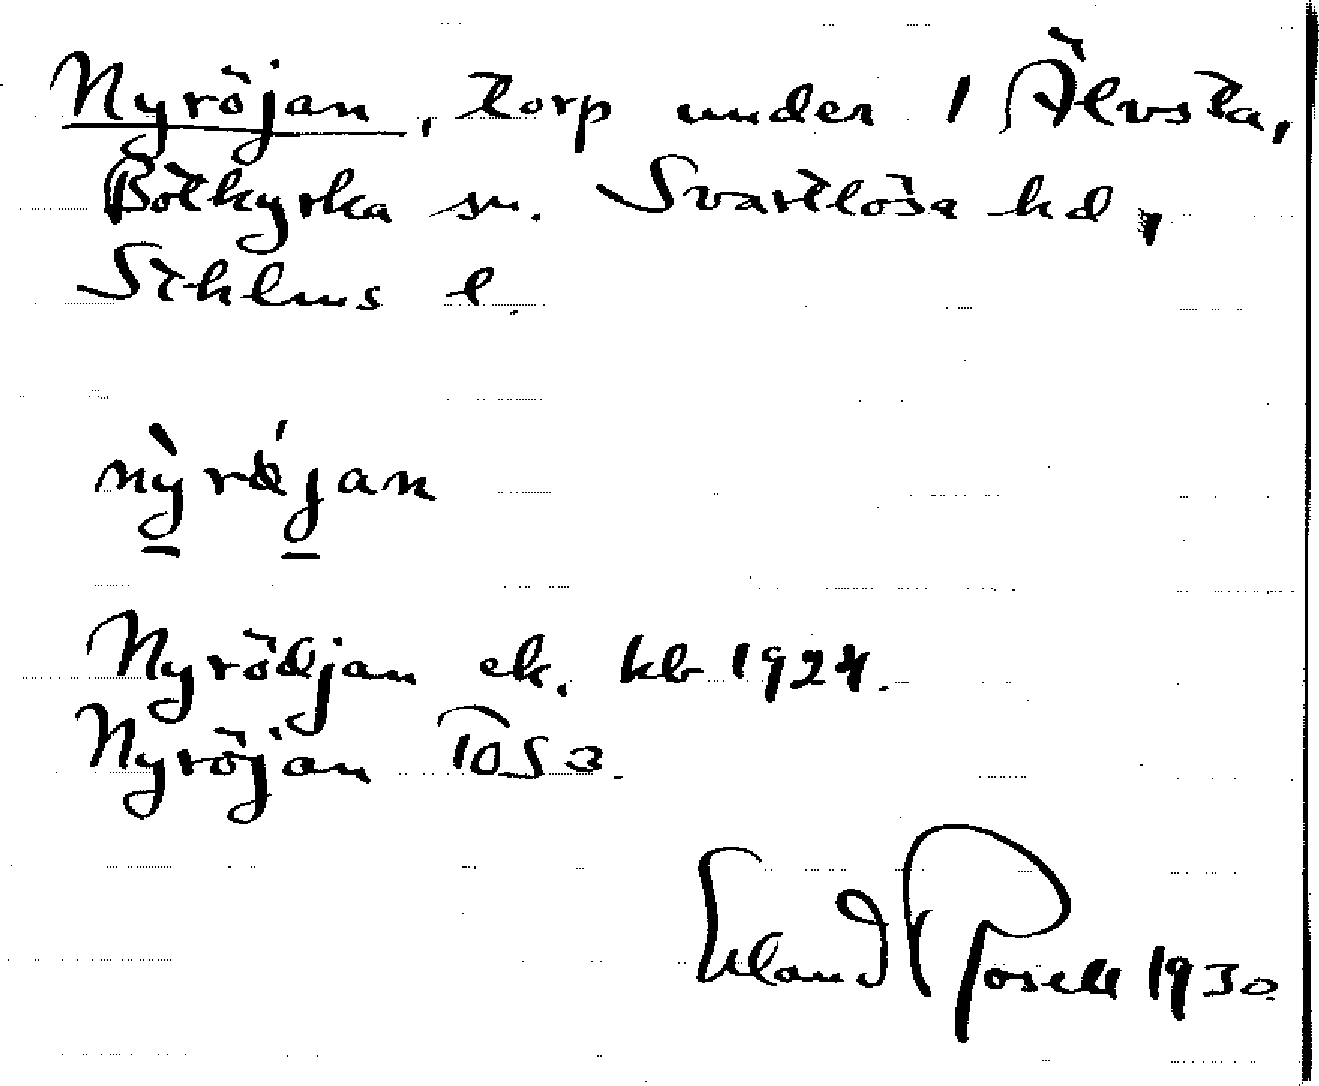 Nyröjan, torp under 1 Älvsta,
Botkyrka sn. Svartlösa hd,
Sthlms l.
nỳrǿjan
Nyrödjan ek. kb 1924.
Nyröjan TOS 3.
Erland Rosell 1930